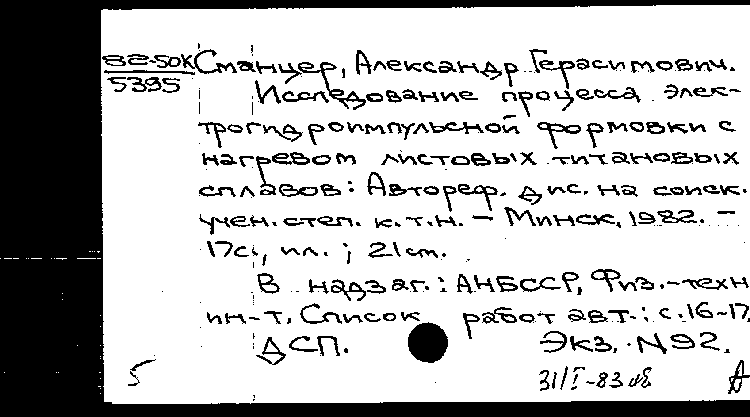 82-50К Станцер, Александр Герасимович.
5395
Исследование процесса элек-
трогидроимпульсной формовки с
нагревом листовых титановых
сплавов: Автореф. дис. на соиск.
учен. степ. к.т.н. – Минск, 1982. –
17с., ил.; 21см.
В надзаг.: АНБССР, Физ.-техн
ин-т, Список работ авт.: с.16-17.
ДСП. Экз. N92.
5 31/I-83